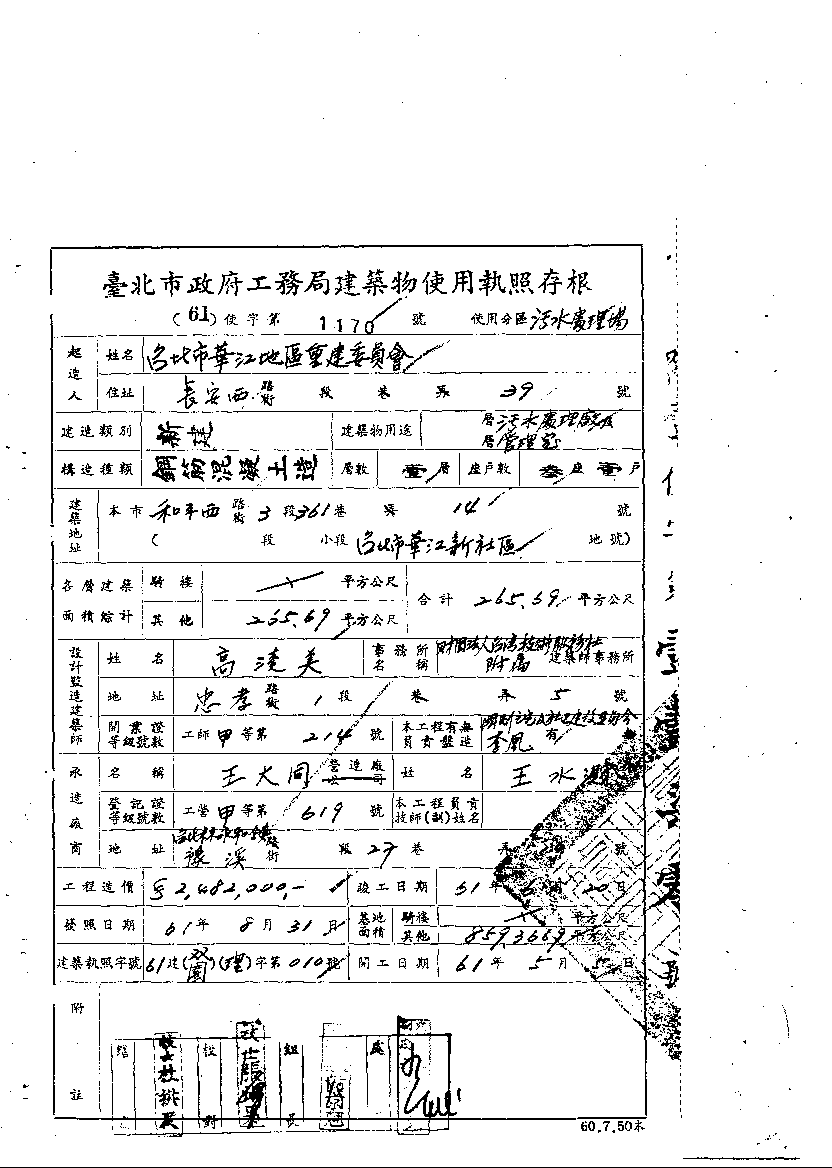 臺北市政府工務局建築物使用執照存根
(61)使字第 1170 號 使用分區 污水處理場
起造人 姓名 台北市華江地區重建委員會
住址 長安西 路街 段 巷 弄 39 號
建造類別 新建 建築物用途 層 污水處理廠及 層 管理室
構造種類 鋼筋混凝土造 層數 壹 層 座戶數 叁 座 壹 戶
建築地址 本市 和平西 路街 3 段 361 巷 弄 14 號
( 段 小段 台北市華江新社區 地號)
各層建築面積綜計 騎樓 平方公尺 合計 265.69 平方公尺
其他 265.69 平方公尺
設計監造建築師 姓名 高凌美 事務所名稱 財團法人台湾技術服務社附屬 建築師事務所
地址 忠孝 路街 1 段 巷 弄 5 號
開業證等級號數 工師 甲 等第 214 號 本工程有無負責監造 有
承造廠商 名稱 王大同 營造廠公司 姓名 王水
登記證等級號數 工營 甲 等第 619 號 本工程負責技師(副)姓名
地址 路街 段 27 巷 弄 號
工程造價 $2,482,000.- 竣工日期 61年 月 20日
發照日期 61年 8月 31日 基地面積 騎樓 平方公尺
其他 859.3669 平方公尺
建築執照字號 61建(双園)(理)字第010號 開工日期 61年 5月 5日
附註
組長 處
60.7.50本